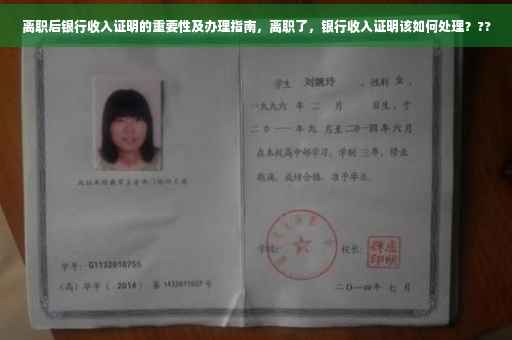 离职后银行收入证明的重要性及办理指南，离职了，银行收入证明该如何处理？??
学生 刘婉玲 ，性别 女 ，
一九九六 年 二 月 日生，于
二0一一年九 月至二0一四年 六月
在本校高中部学习，学制 三年，修业
期满，成绩合格，准予毕业。
学校：
校长：
学号：G1132010755
(高) 毕字 ( 2014 ) 第 1432011027 号
二〇一四年 七 月